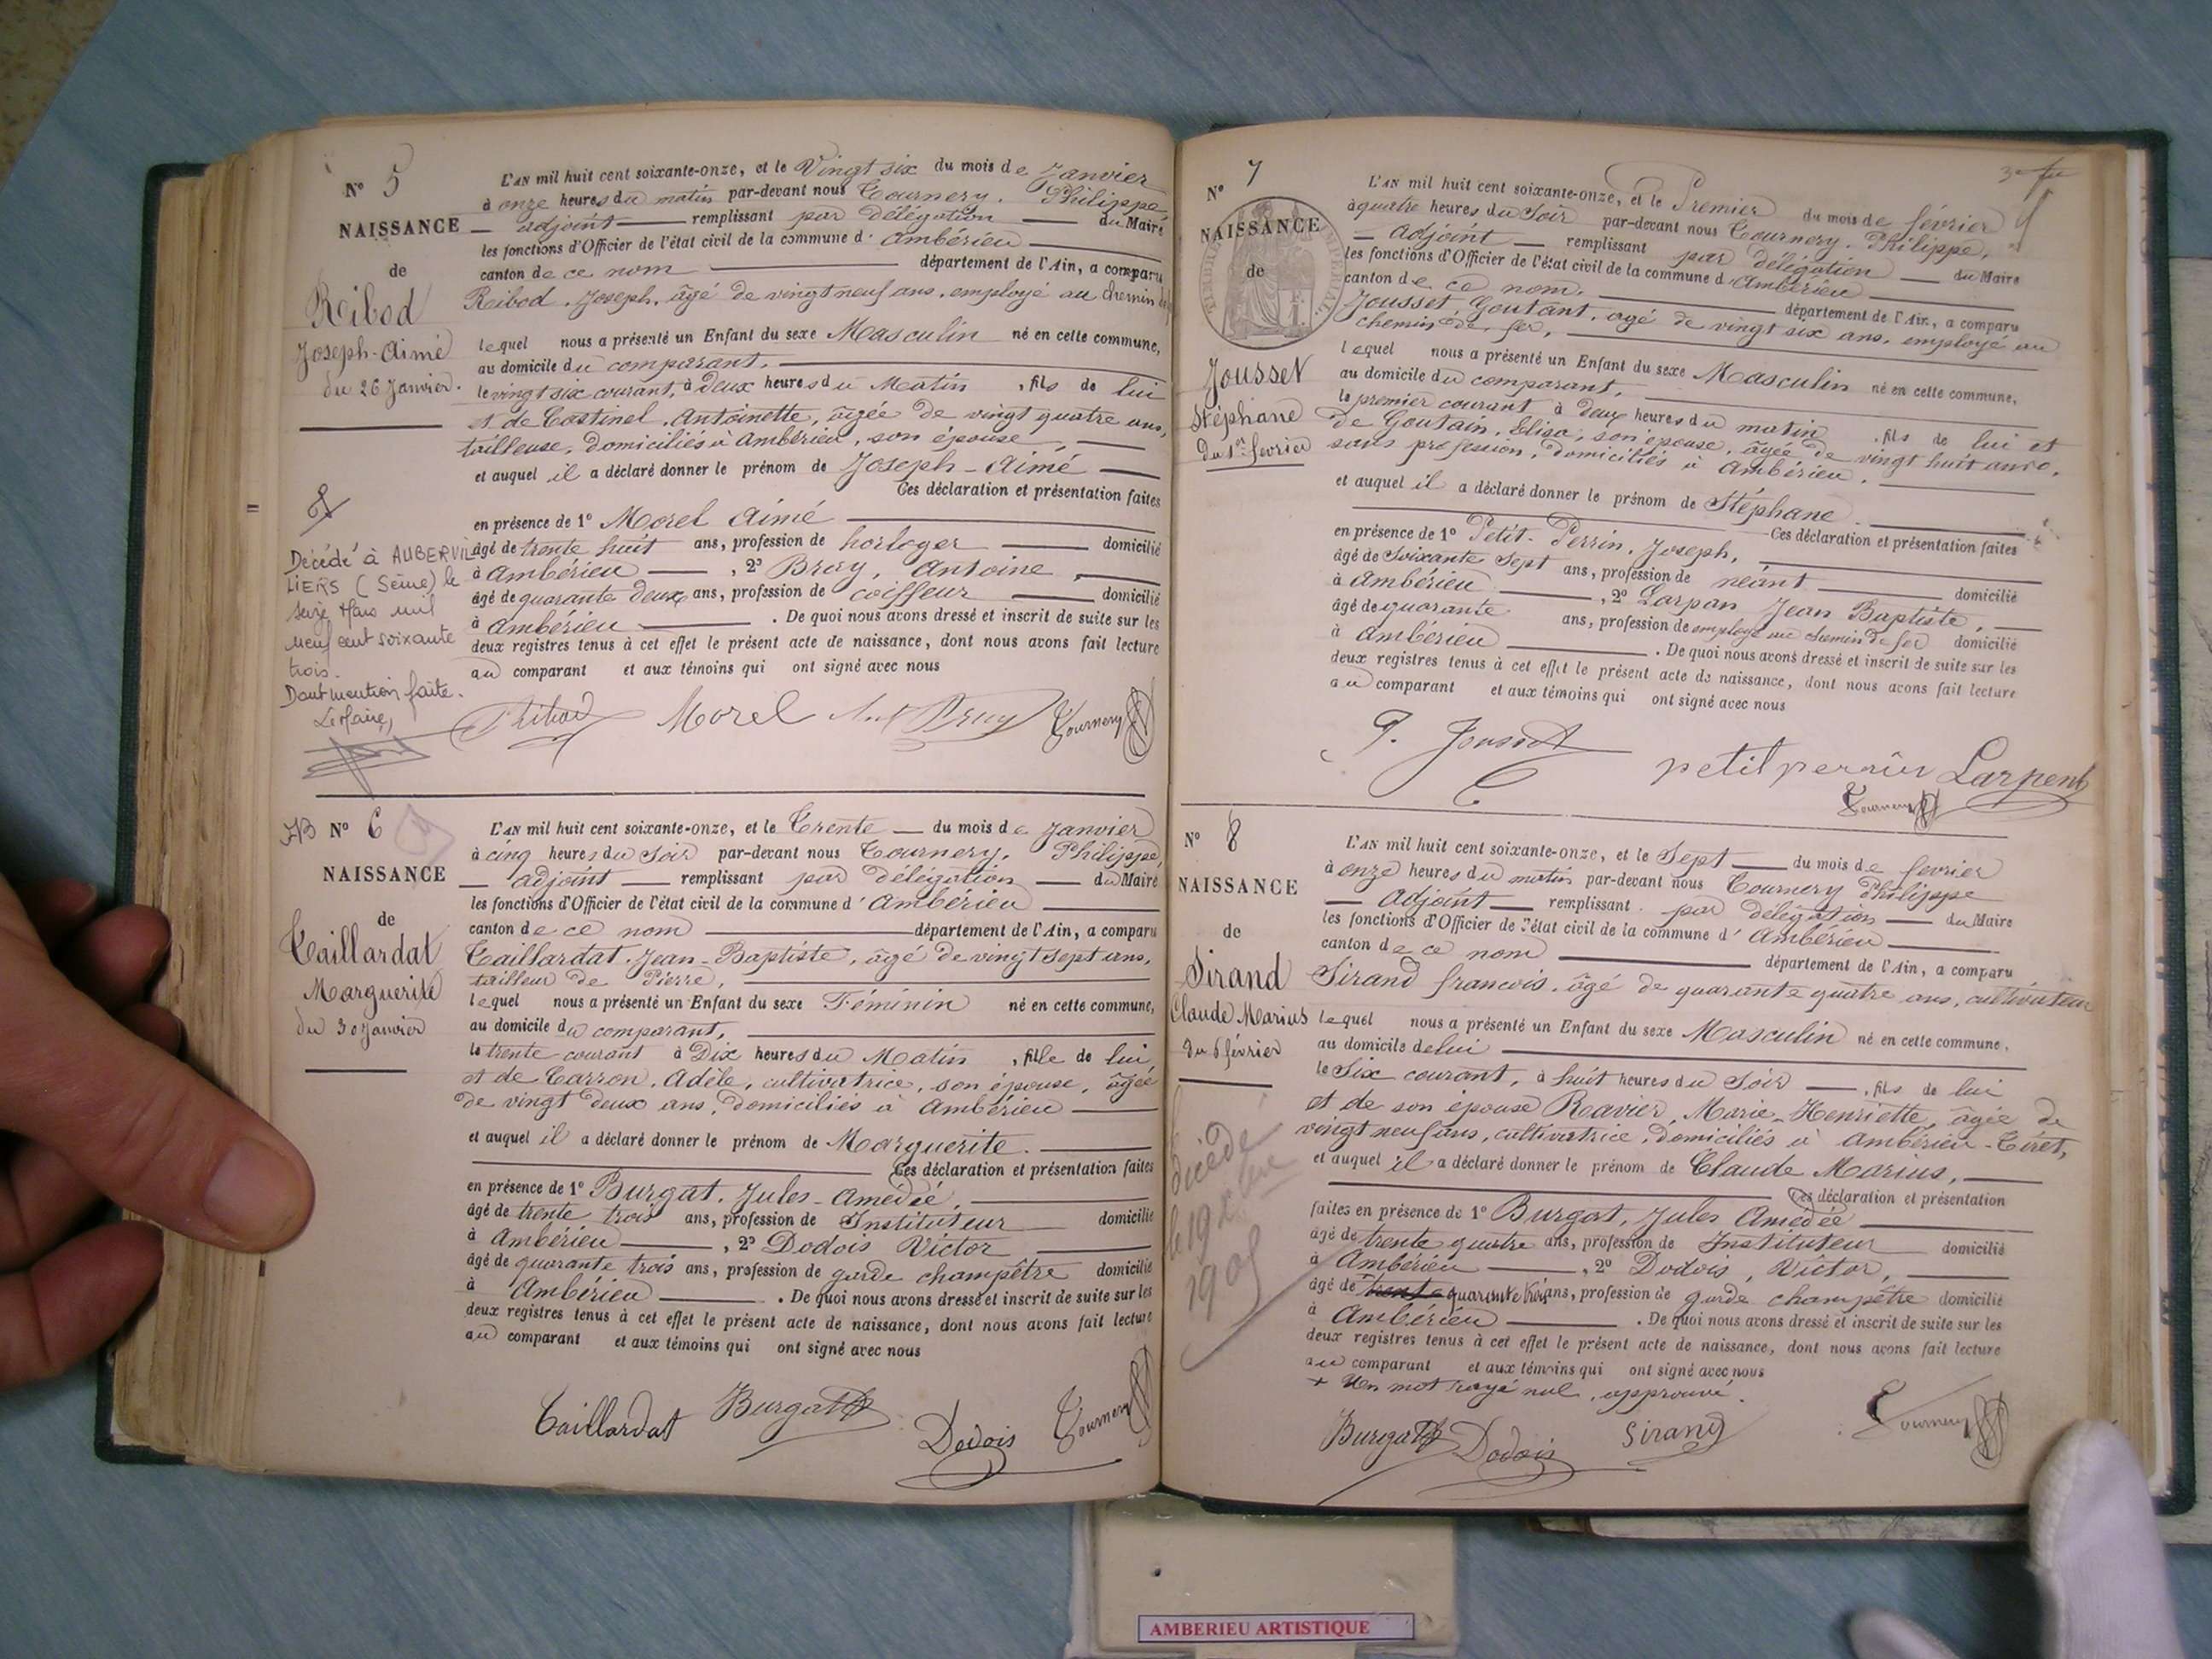 N° 5
NAISSANCE
de
Reibod
Joseph-Aimé
du 26 Janvier.
Décédé à AUBERVIL
LIERS (Seine) le
seize Mars mil
neuf cent soixante
trois.
Dont mention faite.
Le Maire,
L'AN mil huit cent soixante-onze, et le Vingt six du mois de Janvier
à onze heures du matin par-devant nous Tournery. Philippe
adjoint remplissant par délégation du Maire
les fonctions d'Officier de l'état civil de la commune d' Ambérieu
canton de ce nom département de l'Ain, a comparu
Reibod. Joseph, âgé de vingt neuf ans, employé au chemin de
lequel nous a présenté un Enfant du sexe Masculin né en cette commune,
au domicile du comparant.
le vingt six courant, à Deux heures du Matin, fils de lui
et de Costinel. Antoinette, âgée de vingt quatre ans,
tailleuse, domiciliés à Ambérieu, son épouse,
et auquel il a déclaré donner le prénom de Joseph-Aimé
Ces déclaration et présentation faites
en présence de 1° Morel Aimé
âgé de trente huit ans, profession de horloger domicilié
à Ambérieu, 2° Bray, Antoine,
âgé de quarante deux ans, profession de coiffeur domicilié
à Ambérieu. De quoi nous avons dressé et inscrit de suite sur les
deux registres tenus à cet effet le présent acte de naissance, dont nous avons fait lecture
au comparant et aux témoins qui ont signé avec nous
Morel Tournery
N° 6
NAISSANCE
de
Taillardat
Marguerite
du 30 Janvier
L'AN mil huit cent soixante-onze, et le Trente du mois de Janvier
à cinq heures du Soir par-devant nous Tournery. Philippe,
adjoint remplissant par délégation du Maire
les fonctions d'Officier de l'état civil de la commune d' Ambérieu
canton de ce nom département de l'Ain, a comparu
Taillardat. Jean-Baptiste, âgé de vingt sept ans,
tailleur de Pierre,
lequel nous a présenté un Enfant du sexe Féminin né en cette commune,
au domicile du comparant,
le trente courant à Dix heures du Matin, fille de lui
et de Carron. Adèle, cultivatrice, son épouse, âgée
de vingt deux ans, domiciliés à Ambérieu
et auquel il a déclaré donner le prénom de Marguerite.
Ces déclaration et présentation faites
en présence de 1° Burgat. Jules-Amédée,
âgé de trente trois ans, profession de Instituteur domicilié
à Ambérieu, 2° Dodois Victor
âgé de quarante trois ans, profession de garde champêtre domicilié
à Ambérieu. De quoi nous avons dressé et inscrit de suite sur les
deux registres tenus à cet effet le présent acte de naissance, dont nous avons fait lecture
au comparant et aux témoins qui ont signé avec nous
Taillardat Burgat Dodois Tournery
N° 7
NAISSANCE
de
Jousset
Stéphane
du 1er fevrier
L'AN mil huit cent soixante-onze, et le Premier du mois de février
à quatre heures du Soir par-devant nous Tournery. Philippe,
adjoint remplissant par délégation du Maire
les fonctions d'Officier de l'état civil de la commune d' Ambérieu
canton de ce nom, département de l'Ain, a comparu
Jousset Goutant, agé de vingt six ans, employé au
chemin de fer,
lequel nous a présenté un Enfant du sexe Masculin né en cette commune,
au domicile du comparant,
le premier courant à Deux heures du matin, fils de lui et
de Goutain. Elisa, son épouse, âgée de vingt huit ans,
sans profession, domiciliés à Ambérieu,
et auquel il a déclaré donner le prénom de Stéphane
Ces déclaration et présentation faites
en présence de 1° Petit-Perrin. Joseph,
âgé de Soixante Sept ans, profession de néant domicilié
à Ambérieu, 2° Larpan Jean Baptiste,
âgé de quarante ans, profession de employé au chemin de fer domicilié
à Ambérieu. De quoi nous avons dressé et inscrit de suite sur les
deux registres tenus à cet effet le présent acte de naissance, dont nous avons fait lecture
au comparant et aux témoins qui ont signé avec nous
Jousset petit perrin Larpent
Tournery
N° 8
NAISSANCE
de
Sirand
Claude Marius
du 6 février
décédé
1905
L'AN mil huit cent soixante-onze, et le Sept du mois de fevrier
à onze heures du matin par-devant nous Tournery Philippe
Adjoint remplissant par délégation du Maire
les fonctions d'Officier de l'état civil de la commune d' Ambérieu
canton de ce nom département de l'Ain, a comparu
Sirand francois. âgé de quarante quatre ans, cultivateur
lequel nous a présenté un Enfant du sexe Masculin né en cette commune.
au domicile de lui
le Six courant, à huit heures du Soir, fils de lui
et de son épouse Ravier, Marie-Henriette, âgée de
vingt neuf ans, cultivatrice, domiciliés à Ambérieu-Tiret,
et auquel il a déclaré donner le prénom de Claude Marius,
Ces déclaration et présentation
faites en présence de 1° Burgat, Jules Amédée
âgé de trente quatre ans, profession de Instituteur domicilié
à Ambérieu, 2° Dodois, Victor,
âgé de trente quarante trois ans, profession de garde champêtre domicilié
à Ambérieu. De quoi nous avons dressé et inscrit de suite sur les
deux registres tenus à cet effet le présent acte de naissance, dont nous avons fait lecture
au comparant et aux témoins qui ont signé avec nous
+ Un mot rayé nul, approuvé.
Burgat Dodois Sirand Tournery
AMBERIEU ARTISTIQUE